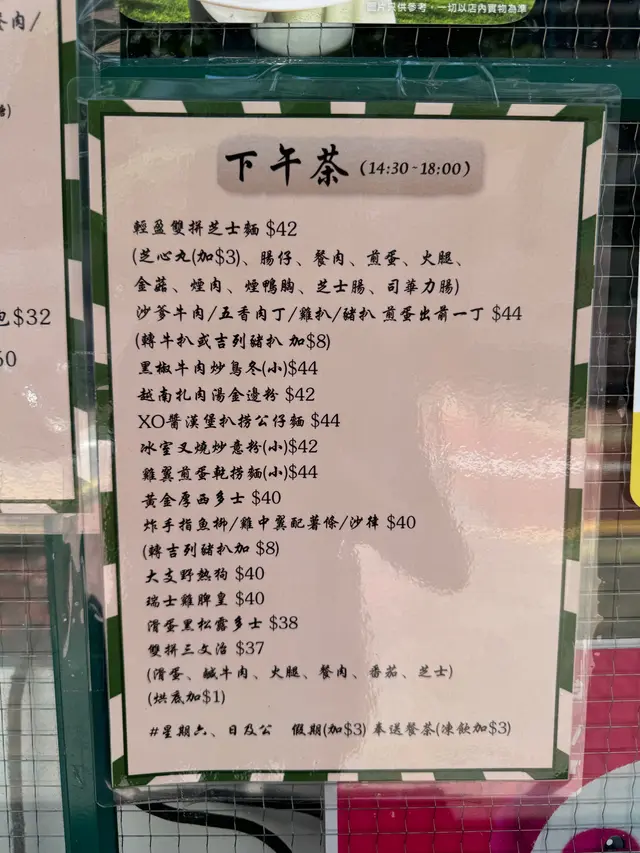 圖片只供參考，一切以店內實物為準
肉/
包$32
下午茶 (14:30-18:00)
輕盈雙拼芝士麵 $42
(芝心丸(加$3)、腸仔、餐肉、煎蛋、火腿、
金菇、煙肉、煙鴨胸、芝士腸、司華力腸)
沙爹牛肉/五香肉丁/雞扒/豬扒 煎蛋出前一丁 $44
(轉牛扒或吉列豬扒 加$8)
黑椒牛肉炒烏冬(小)$44
越南扎肉湯金邊粉 $42
XO醬漢堡扒撈公仔麵 $44
冰室叉燒炒意粉(小)$42
雞翼煎蛋乾撈麵(小)$44
黃金厚西多士 $40
炸手指魚柳/雞中翼配薯條/沙律 $40
(轉吉列豬扒加 $8)
大支野熱狗 $40
瑞士雞髀皇 $40
滑蛋黑松露多士 $38
雙拼三文治 $37
(滑蛋、鹹牛肉、火腿、餐肉、番茄、芝士)
(烘底加$1)
#星期六、日及公 假期(加$3) 奉送餐茶(凍飲加$3)